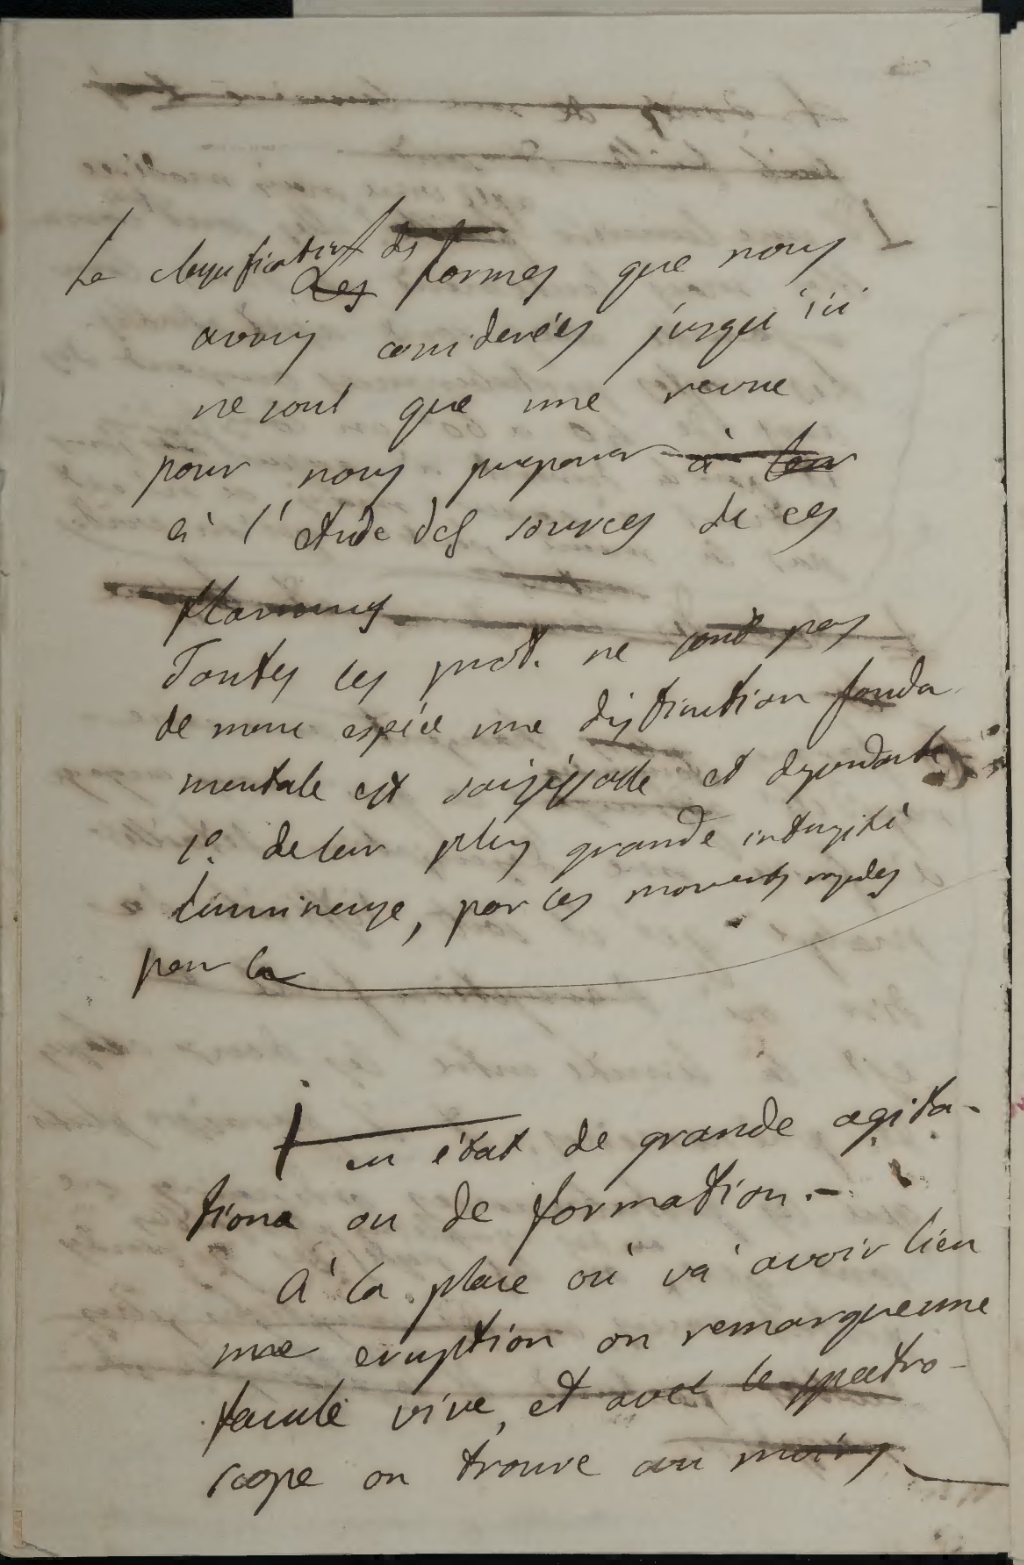 La classification des
Les formes que nous
avons considerées jusqu'ici
ne sont que une revue
pour nous preparer à leur
à l'etude des sources de ces
flammes
Toutes les prot. ne sont pas
de meme espèce une distinction fonda
mentale est saisissable et dependante
1º. de leur plus grande intensité
lumineuse, par les mouvements rapides
par la
en état de grande agita-
tiona ou de formation.-
A la place où va avoir lieu
une eruption on remarque une
facule vive, et avec le spectro-
scope on trouve au moins